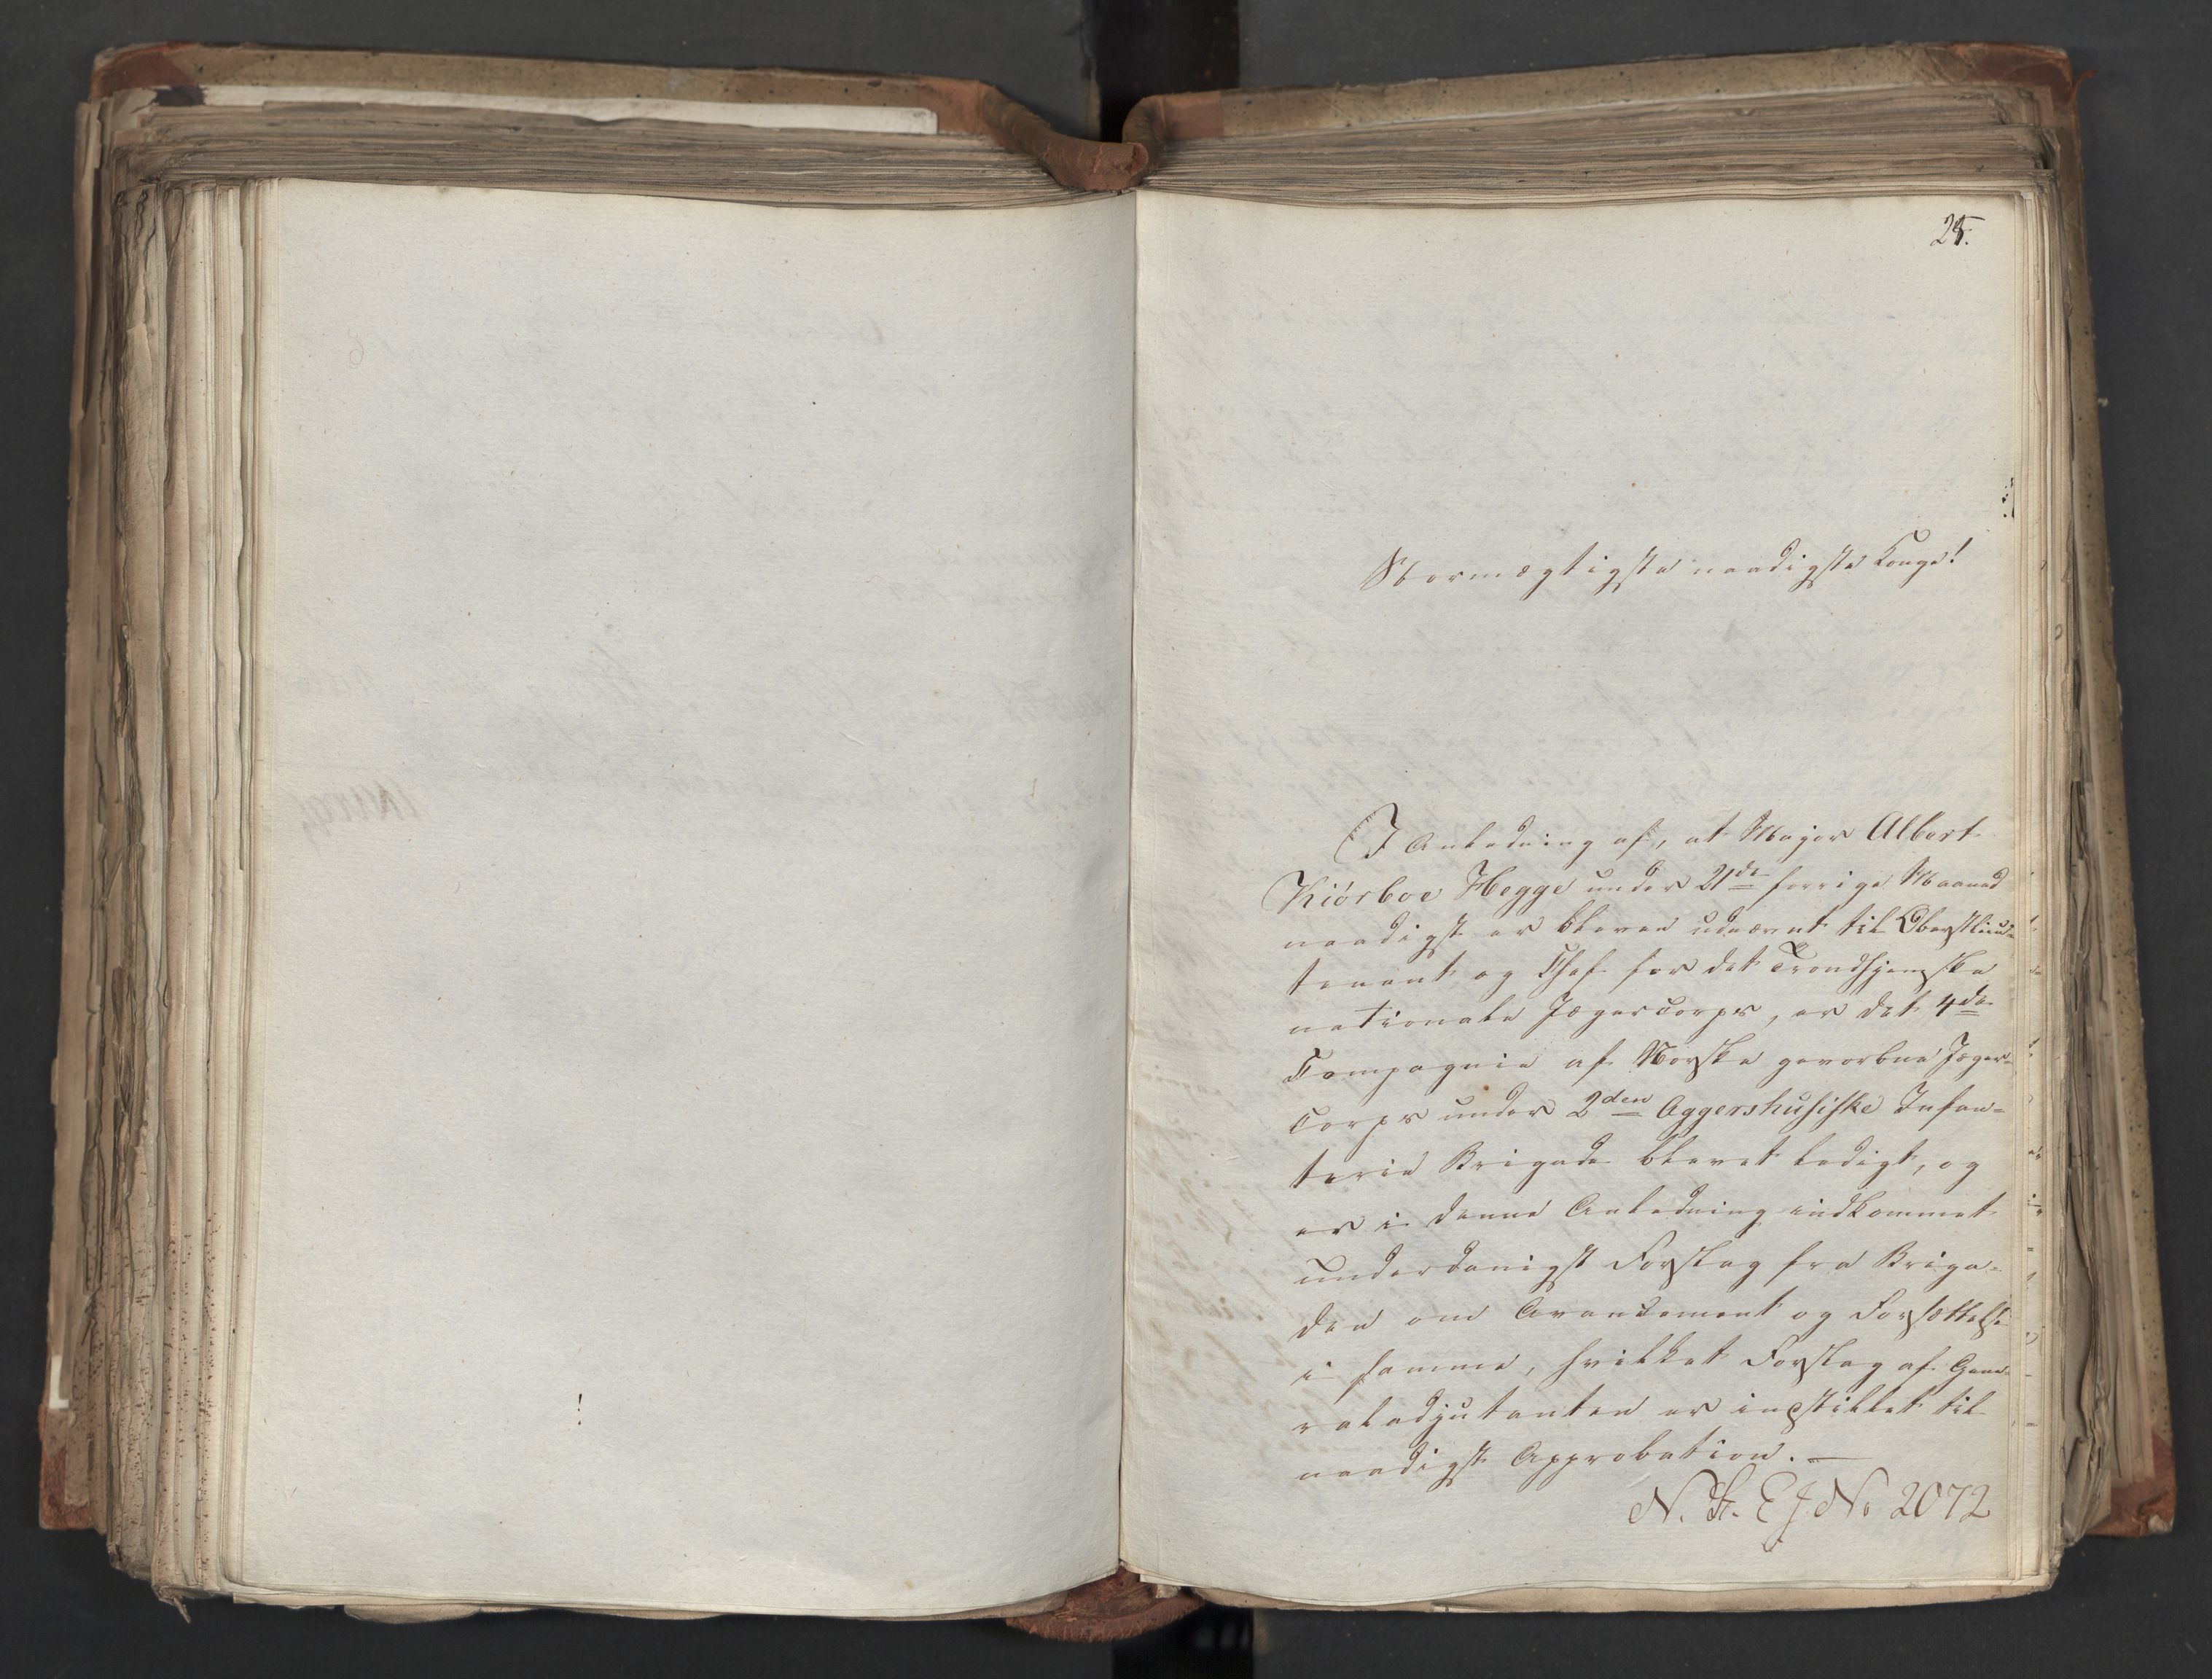 25.
Stormægtigste naadigste Konge!
I Anledning af, at Major Albert
Kiörboe Hegge under 21de forrige Maaned
naadigst er bleven udnævnt til Oberstlieu-
tenant og Chef for det Trondhjemske
nationale Jægercorps, er det 4de
Compagnie af Norske gevorbne Jæger-
Corps under 2den Aggershusiske Infan=
terie Brigade blevet ledigt, og
er i denne Anledning indkommet
underdanigst Forslag fra Briga-
den om Avancement og Forsættelse
i samme, hvilket Forslag af Gene-
raladjutanten er indstillet til
naadigst Approbation. —
N. St. E J. No 2072